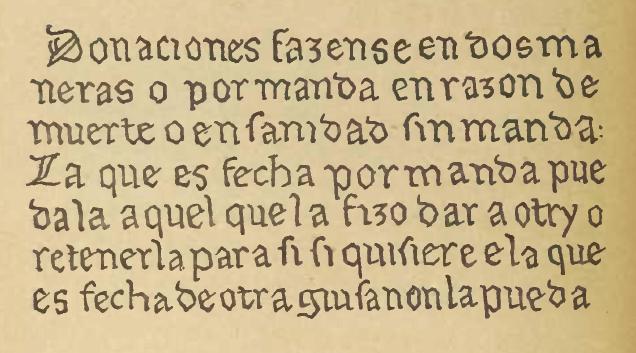 Donaciones fazense en dos ma
neras o por manda en razon de
muerte o en ſanidad ſin manda:
La que es fecha por manda pue
dala aquel que la fizo dar a otry o
retenerla para ſi ſi quiſiere e la que
es fecha de otra giuſa non la pueda